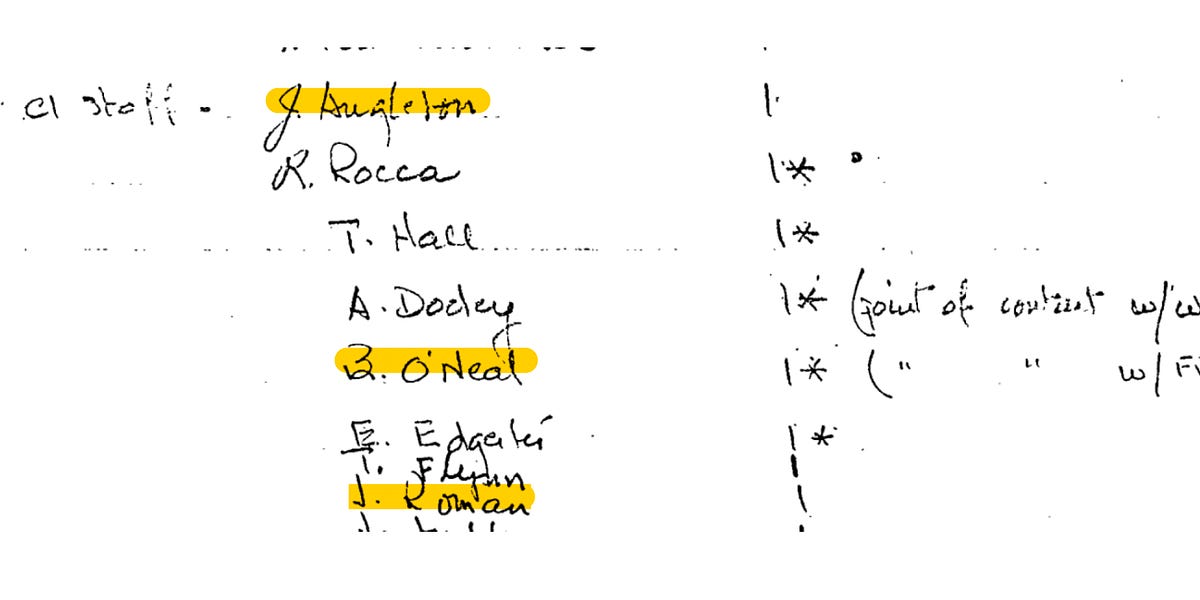 CI Staff - J. Angleton 1
R. Rocca 1*
T. Hall 1*
A. Dooley 1* (point of contact w/
B. O'Neal 1* (" " w/
E. 1*
T. Flynn 1
J. Roman 1